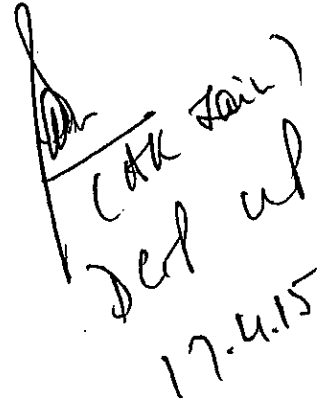 (AK Jain)
DGP UP
17.4.15